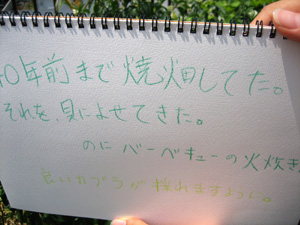 40年前まで焼畑してた。
それを、見によせてきた。
のに バーベキューの火炊き
良いカブラが採れますように。